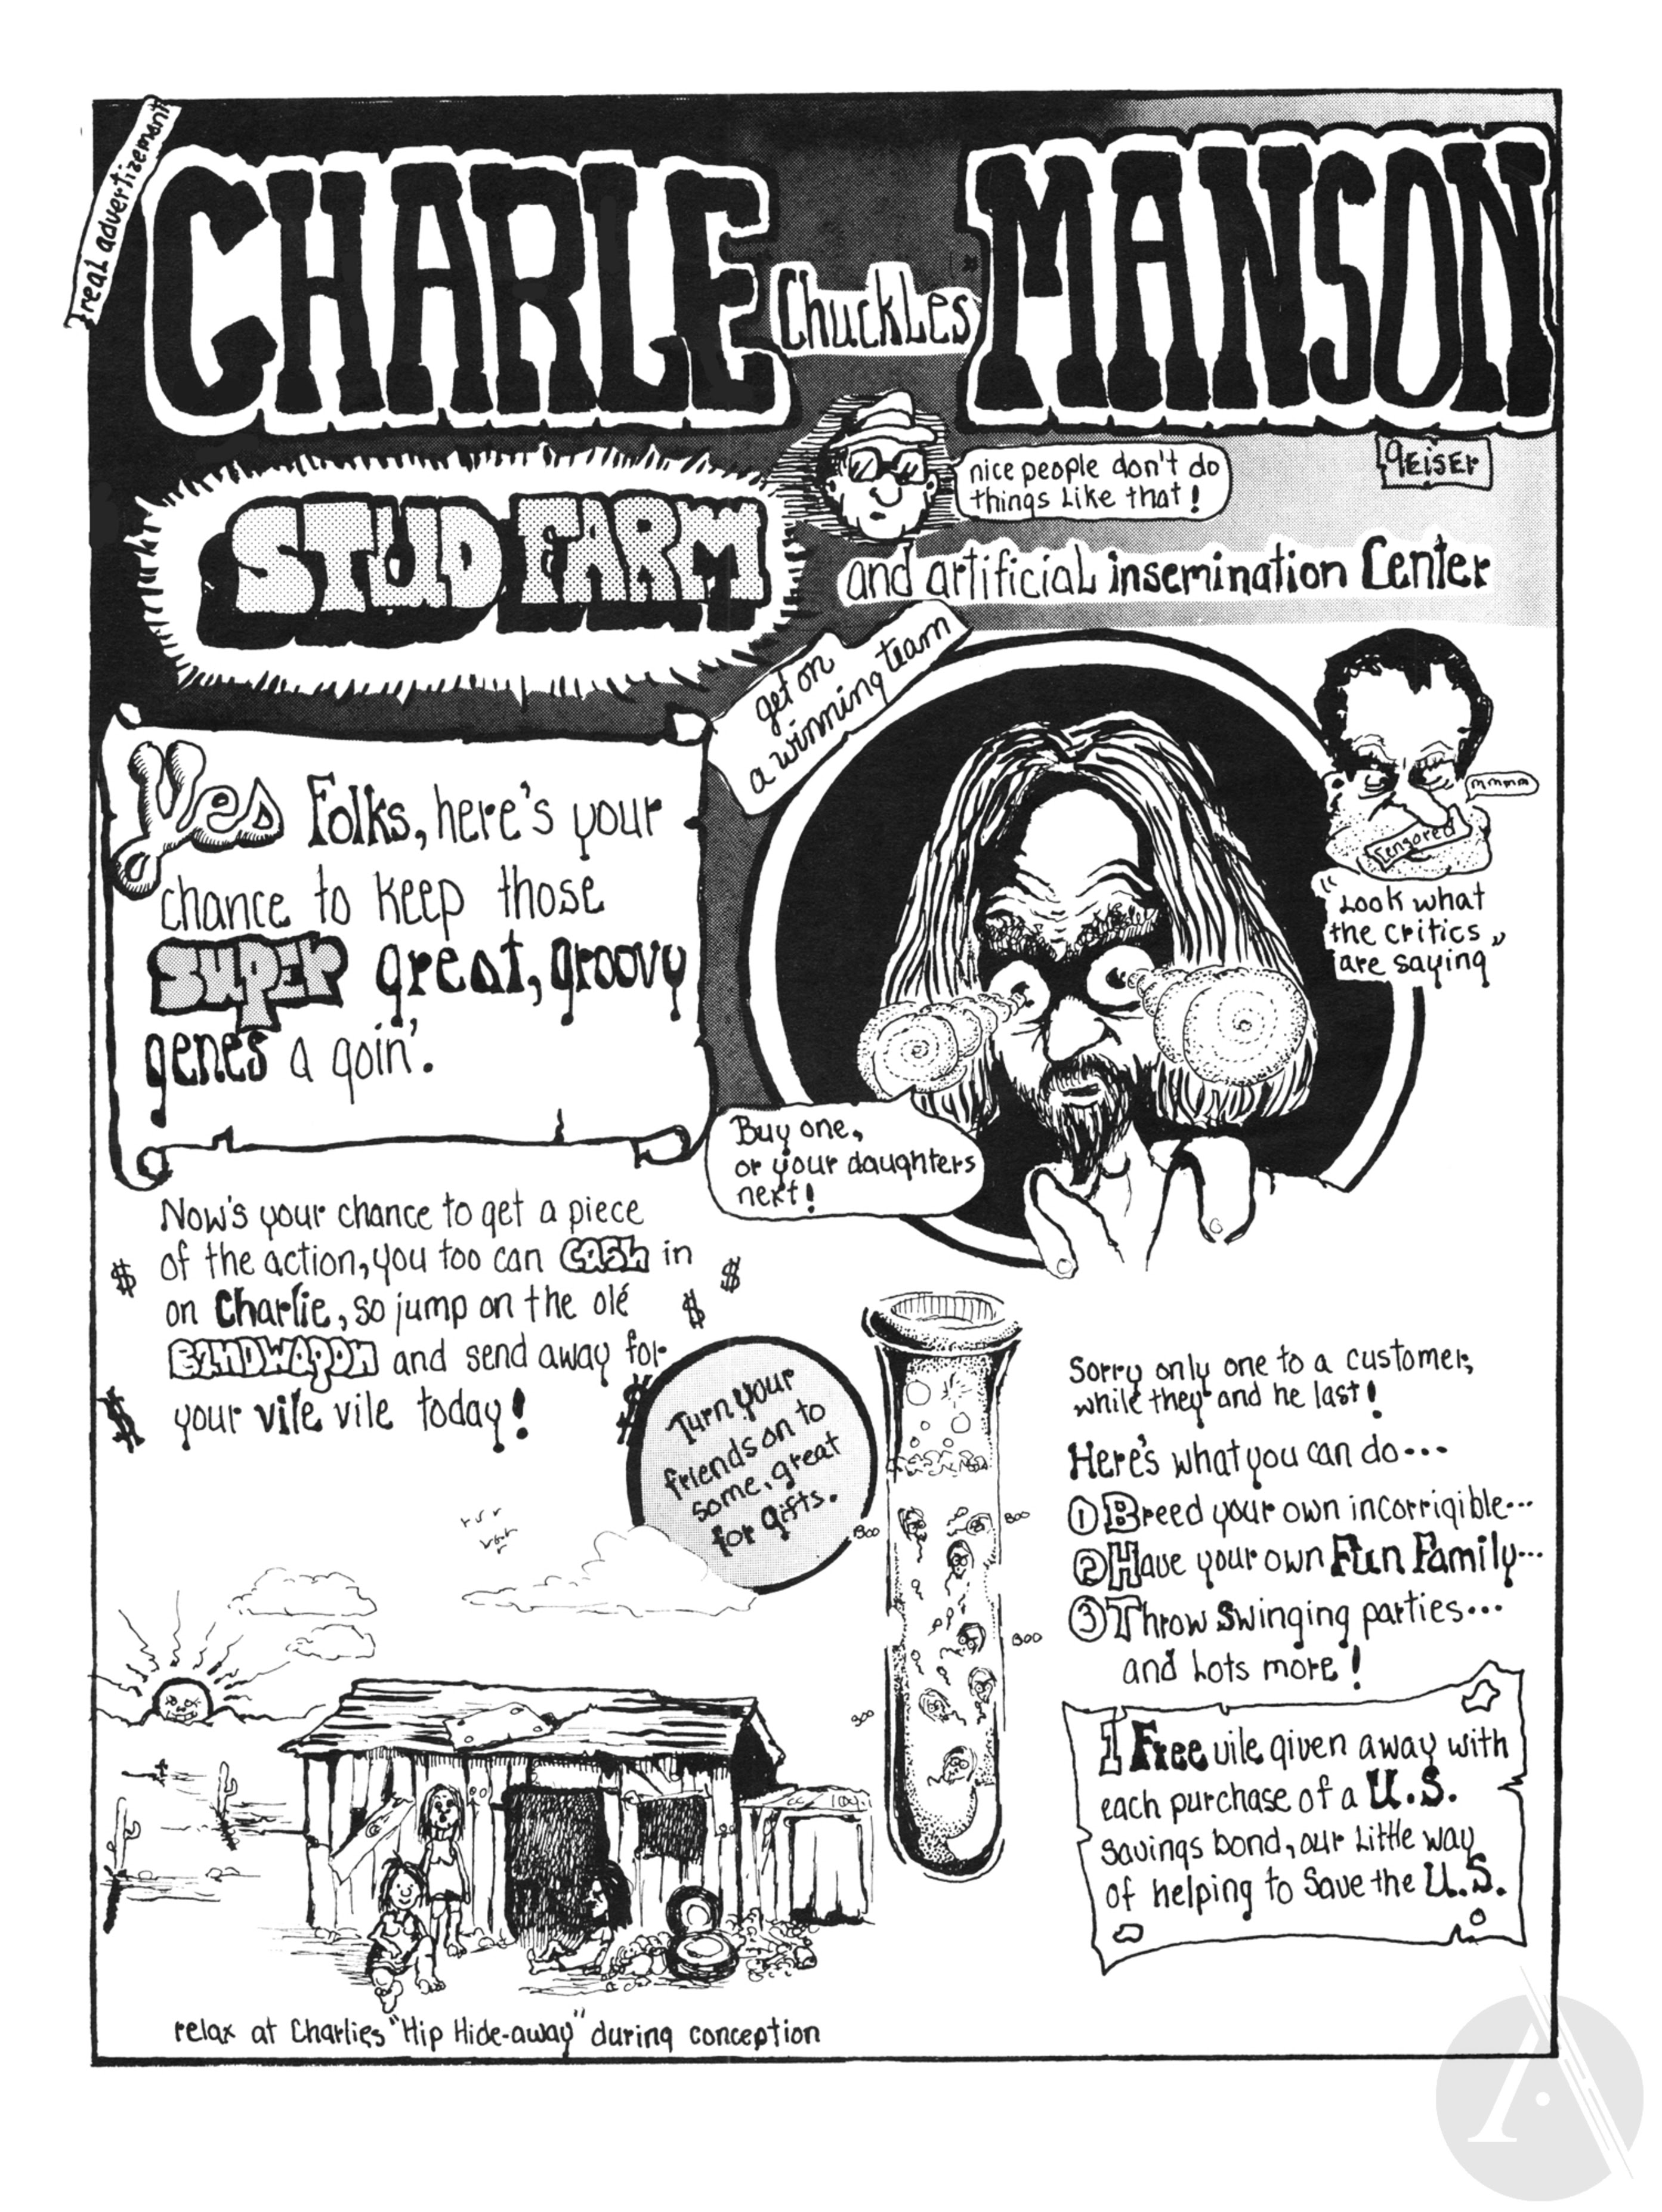 real advertizemant
CHARLE
Chuckles
MANSON
nice people don't do
things Like that!
GEISER
STUD FARM
and artificial insemination Center
get on
a winning team
mmmm
Censored
"Look what
the critics"
are saying
Yes Folks, here's your
chance to keep those
super great, groovy
genes a goin'.
Buy one,
or your daughters
next!
Now's your chance to get a piece
of the action, you too can CASH in
on Charlie, so jump on the olé
BANDWAGON and send away for
your vile vile today!
$
$
$
$
$
Turn your
friends on to
some, great
for gifts.
Boo
Boo
Boo
Boo
Sorry only one to a customer,
while they and he last!
Here's what you can do...
① Breed your own incorrigible...
② Have your own Fun Family...
③ Throw Swinging parties...
and Lots more!
1 Free vile given away with
each purchase of a U.S.
savings bond, our Little way
of helping to Save the U.S.
relax at Charlies "Hip Hide-away" during conception